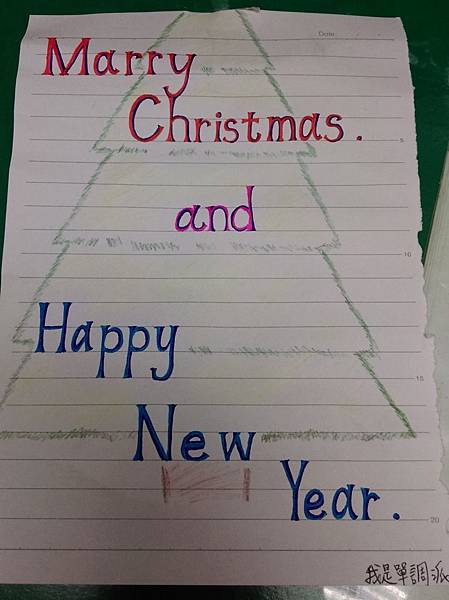 Date
Marry
Christmas.
5
and
10
Happy
15
New
Year.
20
我是單調派